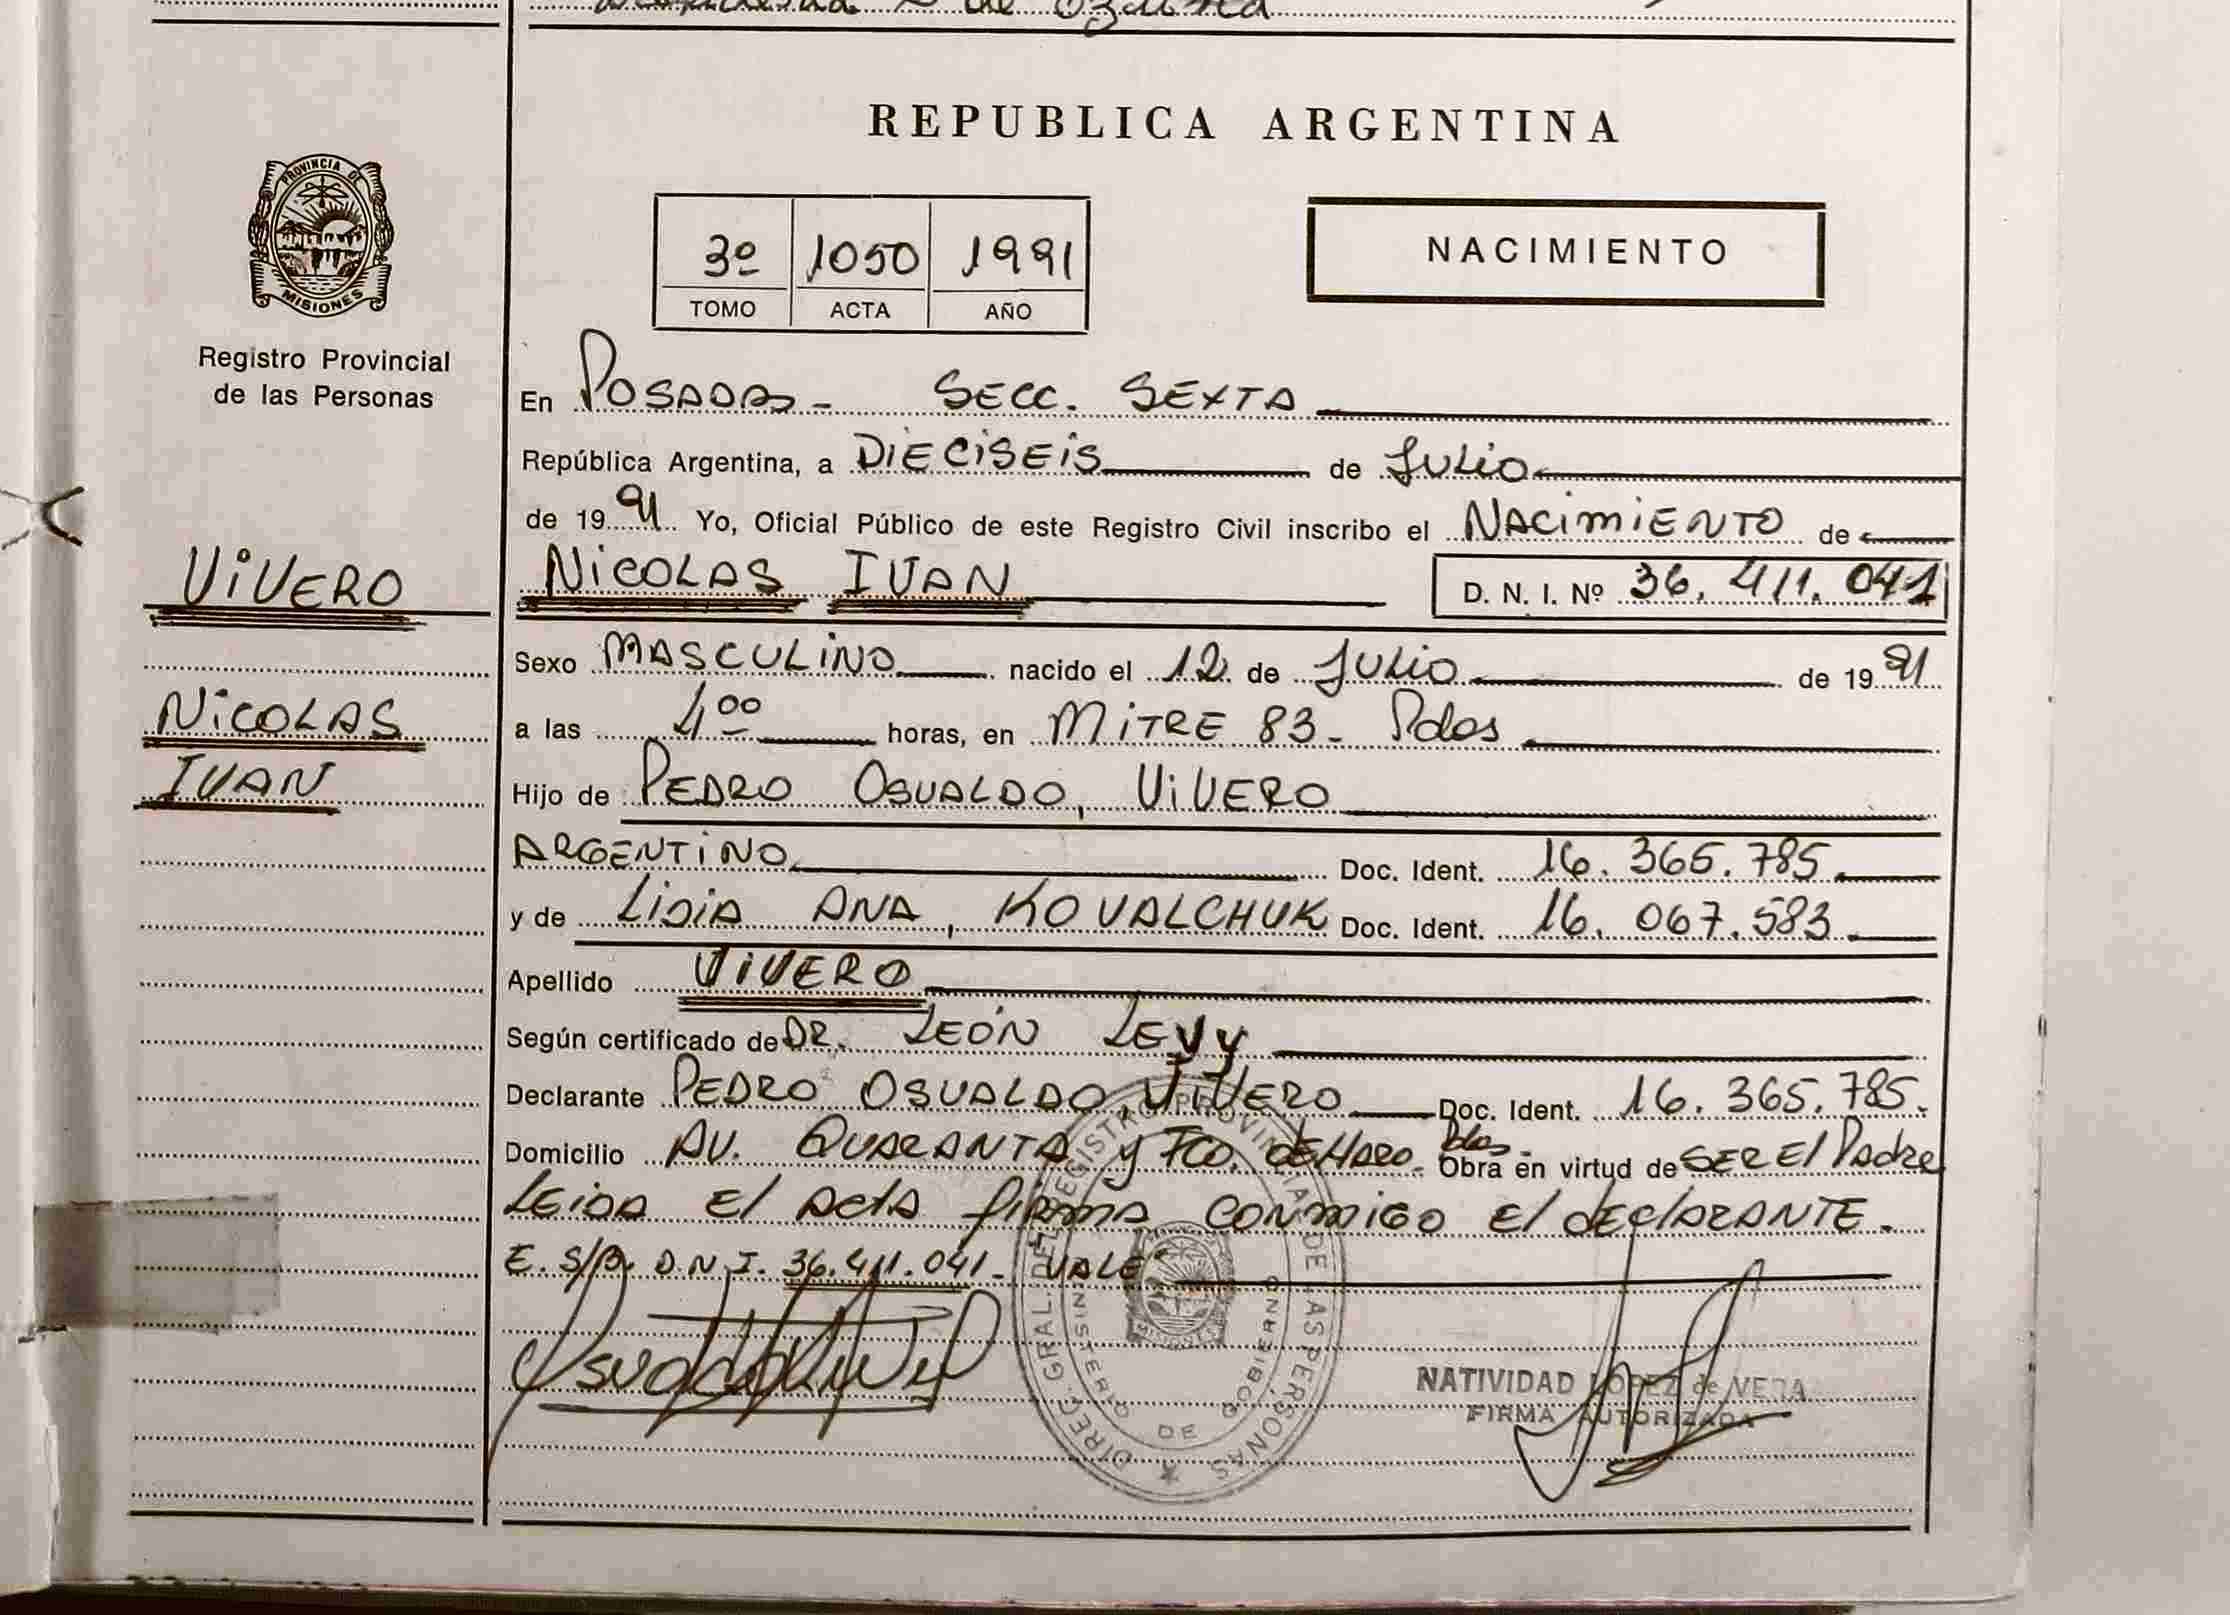 REPUBLICA ARGENTINA
PROVINCIA DE
MISIONES
Registro Provincial
de las Personas
3º 1050 1991
TOMO ACTA AÑO
NACIMIENTO
En POSADAS - SECC. SEXTA
República Argentina, a DIECISEIS de JULIO
de 1991 Yo, Oficial Público de este Registro Civil inscribo el NACIMIENTO de
VIVERO
NICOLAS IVAN D. N. I. Nº 36.411.041
Sexo MASCULINO nacido el 12 de JULIO de 1991
NICOLAS
a las 4:00 horas, en MITRE 83 - Pdas
IVAN
Hijo de PEDRO OSVALDO, VIVERO
ARGENTINO Doc. Ident. 16.365.785
y de LIDIA ANA, KOVALCHUK Doc. Ident. 16.067.583
Apellido VIVERO
Según certificado de DR. LEÓN LEVY
Declarante PEDRO OSVALDO, VIVERO Doc. Ident. 16.365.785.
Domicilio AV. QUARANTA y FCO. DE HARO - Pdas - Obra en virtud de SER El Padre
LEIDA El Acta firma conmigo El DEclARANTE.
E. S/R. D.N.I. 36.411.041 - VALE
DIREC. GRAL. DEL REGISTRO PROVINCIAL DE LAS PERSONAS
MINISTERIO DE GOBIERNO
MISIONES
NATIVIDAD LOPEZ de VERA
FIRMA AUTORIZADA